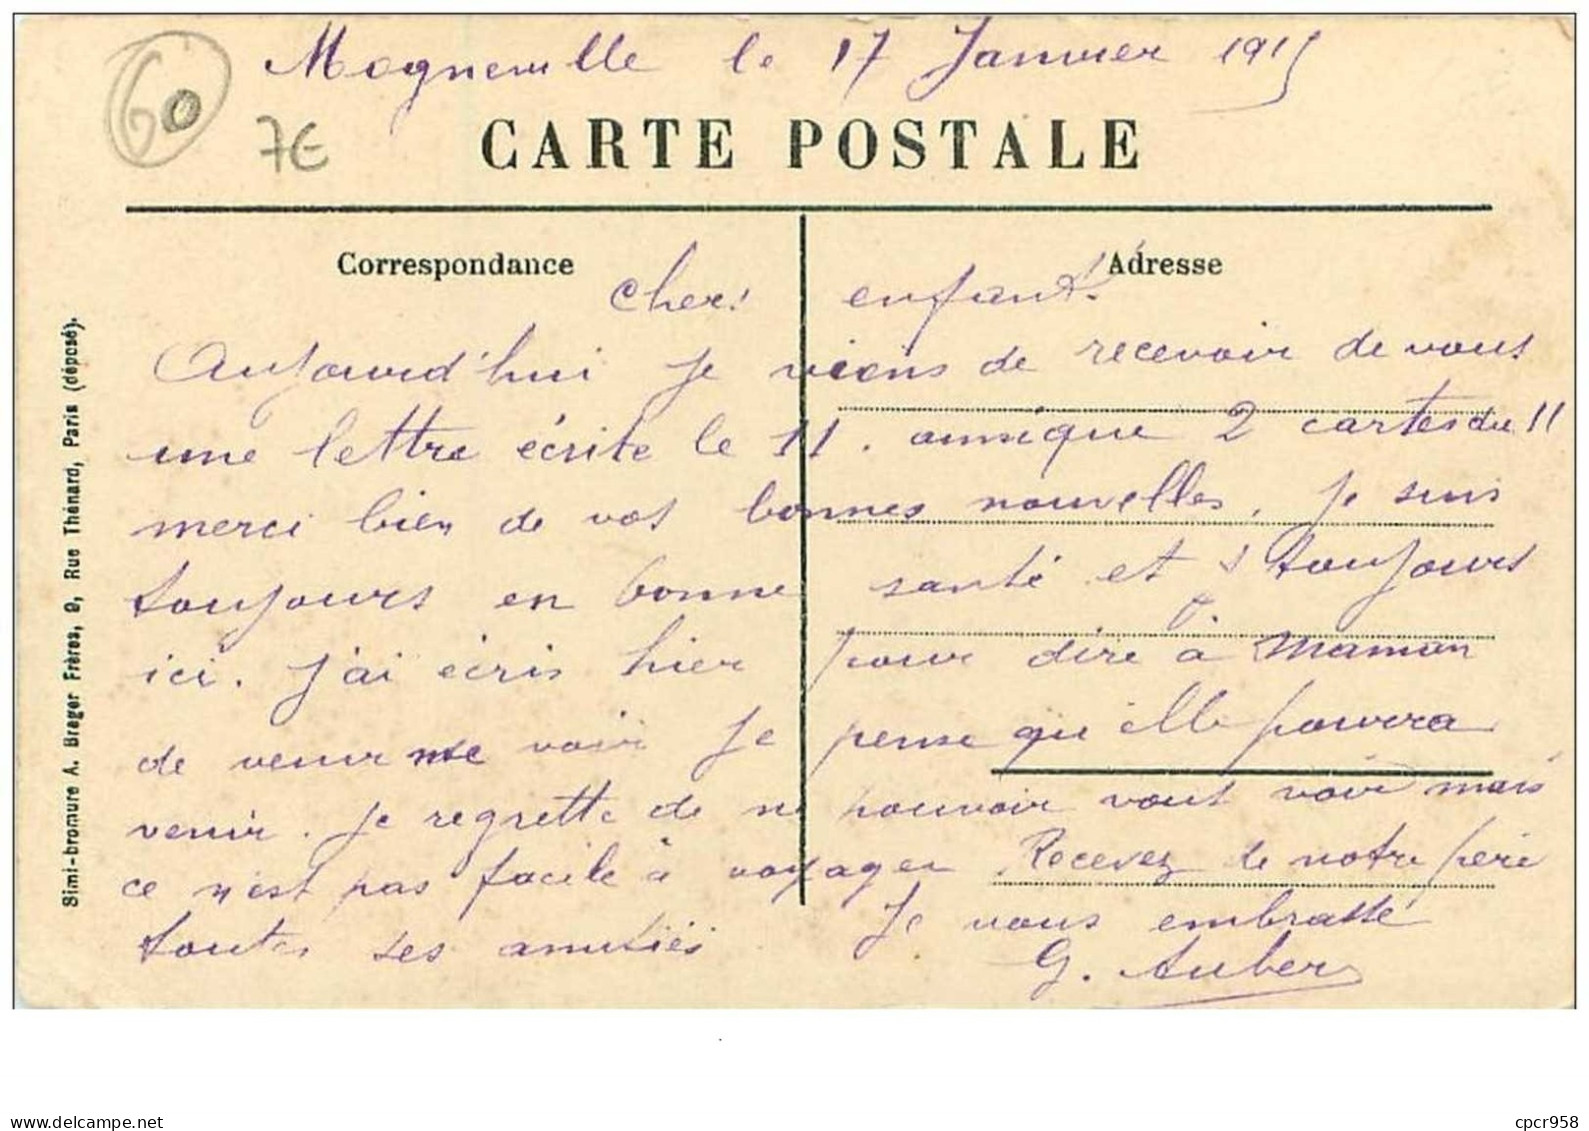 60
Mogneville le 17 Janvier 1915
7€
CARTE POSTALE
Correspondance
Adresse
Chers enfants.
Aujourd'hui je viens de recevoir de vous
une lettre écrite le 11. ainsi que 2 cartes du 11
merci bien de vos bonnes nouvelles, je suis
toujours en bonne santé et toujours
ici. j'ai écris hier pour dire à Maman
de venir me voir je pense qu'elle pourra
venir. je regrette de ne pouvoir vous voir mais
ce n'est pas facile à voyager Recevez de votre père
toutes ses amitiés Je vous embrasse
G. Auber
Simi-bromure A. Breger Frères, 9, Rue Thénard, Paris (déposé).
www.delcampe.net
cpcr958